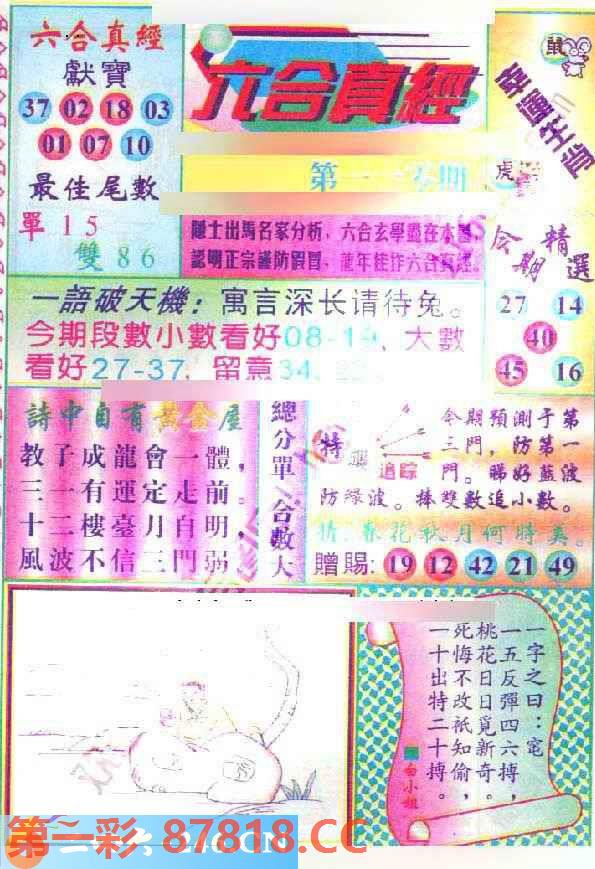 六合真經
獻寶
37 02 18 03
01 07 10
最佳尾數
單 1 5
雙 8 6
六合真經
隱士出馬名家分析，六合玄學盡在本
認明正宗謹防假冒，龍年佳作六合真經
鼠
幸運生肖
虎
今期精選
27 14
40
45 16
一語破天機：寓言深长请待兔。
今期段數小數看好08-19、大數
看好27-37、留意34、
詩中自有黃金屋
教子成龍會一體，
三一有運定走前。
十二樓臺月自明，
風波不信三門弱
總分單 合數大
特碼
追踪
今期預測于第
三門，防第一
門。睇好藍波
防綠波。捧雙數追小數。
猜：春花秋月何時美。
贈賜：19 12 42 21 49
一字之曰：宛
一五反彈四六搏，
桃花日日覓新奇。
死悔不改衹知偷，
一十出特二十搏。
白小姐
第一彩 87818.CC